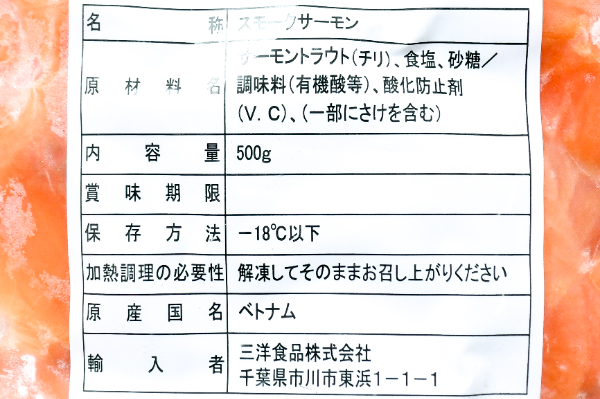 名称 スモークサーモン
原材料名 サーモントラウト(チリ)、食塩、砂糖／
調味料(有機酸等)、酸化防止剤
(V.C)、(一部にさけを含む)
内容量 500g
賞味期限
保存方法 －18℃以下
加熱調理の必要性 解凍してそのままお召し上がりください
原産国名 ベトナム
輸入者 三洋食品株式会社
千葉県市川市東浜1－1－1